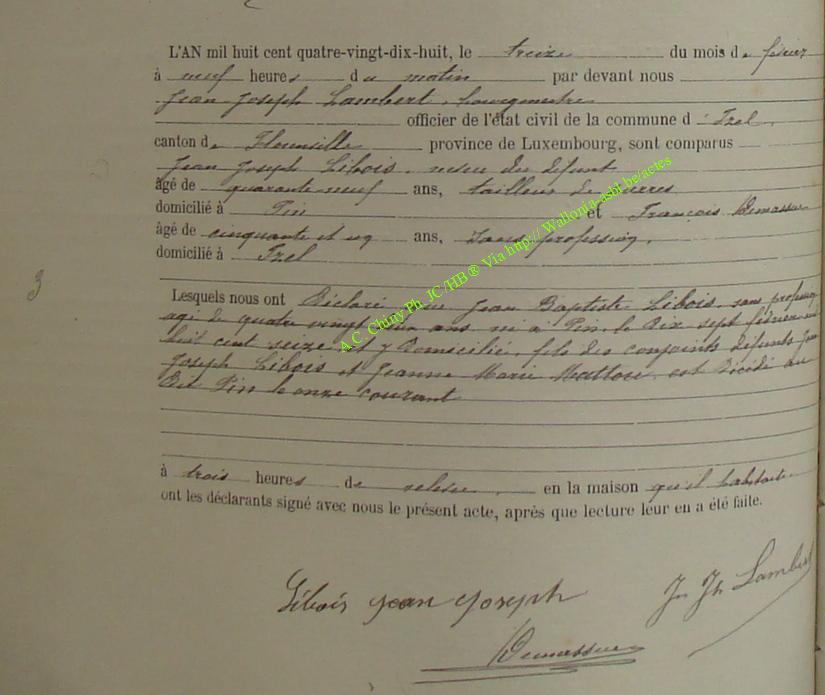 L'AN mil huit cent quatre-vingt-dix-huit, le treize du mois de février
à neuf heures du matin par devant nous
Jean Joseph Lambert, bourgmestre
officier de l'état civil de la commune d'Izel,
canton de Florenville province de Luxembourg, sont comparus
Jean Joseph Libois, neveu du défunt
âgé de quarante neuf ans, tailleur de pierres
domicilié à Pin et François Demasse
âgé de cinquante et un ans, sans profession,
domicilié à Izel
3
Lesquels nous ont Déclaré que Jean Baptiste Libois, sans profession
agé de quatre vingt ans né à Pin, le dix sept février mil
huit cent seize et y domicilié, fils des conjoints défunts Jean
Joseph Libois et Jeanne Marie est décédé au
dit Pin le onze courant
à trois heures de relevée, en la maison qu'il habitait
ont les déclarants signé avec nous le présent acte, après que lecture leur en a été faite.
Libois jean joseph
Jn Jh Lambert
A.C. Chiny Ph. JC/HB ® Via http:// Wallonia-asbl.be/actes